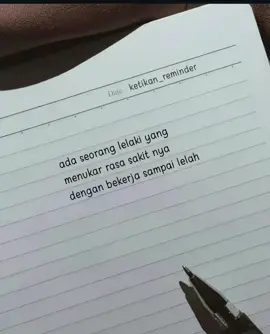 Date: ketikan_reminder
ada seorang lelaki yang
menukar rasa sakit nya
dengan bekerja sampai lelah